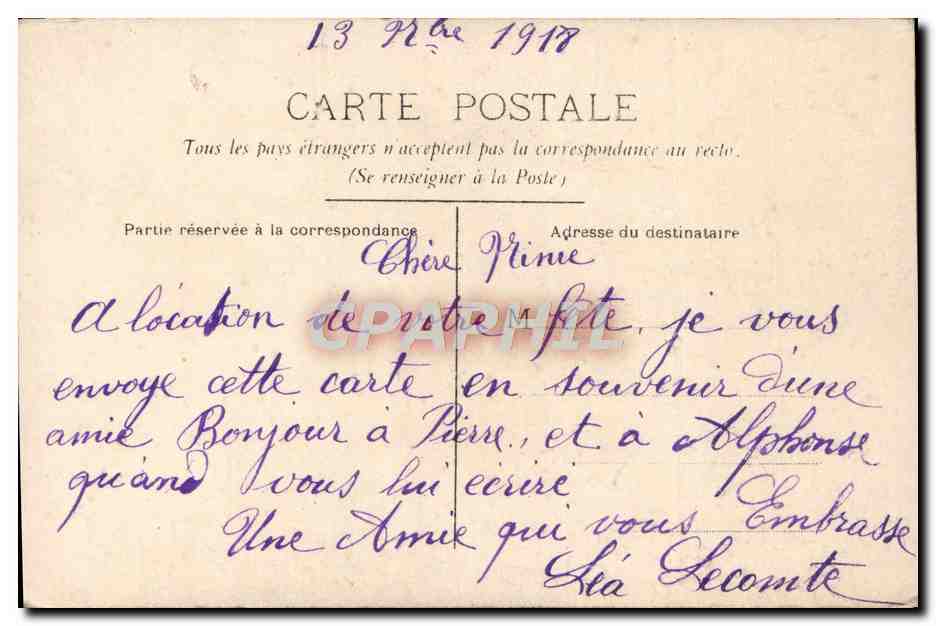 13 9bre 1918
CARTE POSTALE
Tous les pays étrangers n'acceptent pas la correspondance au recto.
(Se renseigner à la Poste)
Partie réservée à la correspondance
Adresse du destinataire
Chère
M
A location de votre fête, je vous
envoye cette carte en souvenir d'une
amie Bonjour à Pierre, et à Alphonse
quand vous lui écrire
Une Amie qui vous Embrasse
Léa Lecomte
CPAPHIL